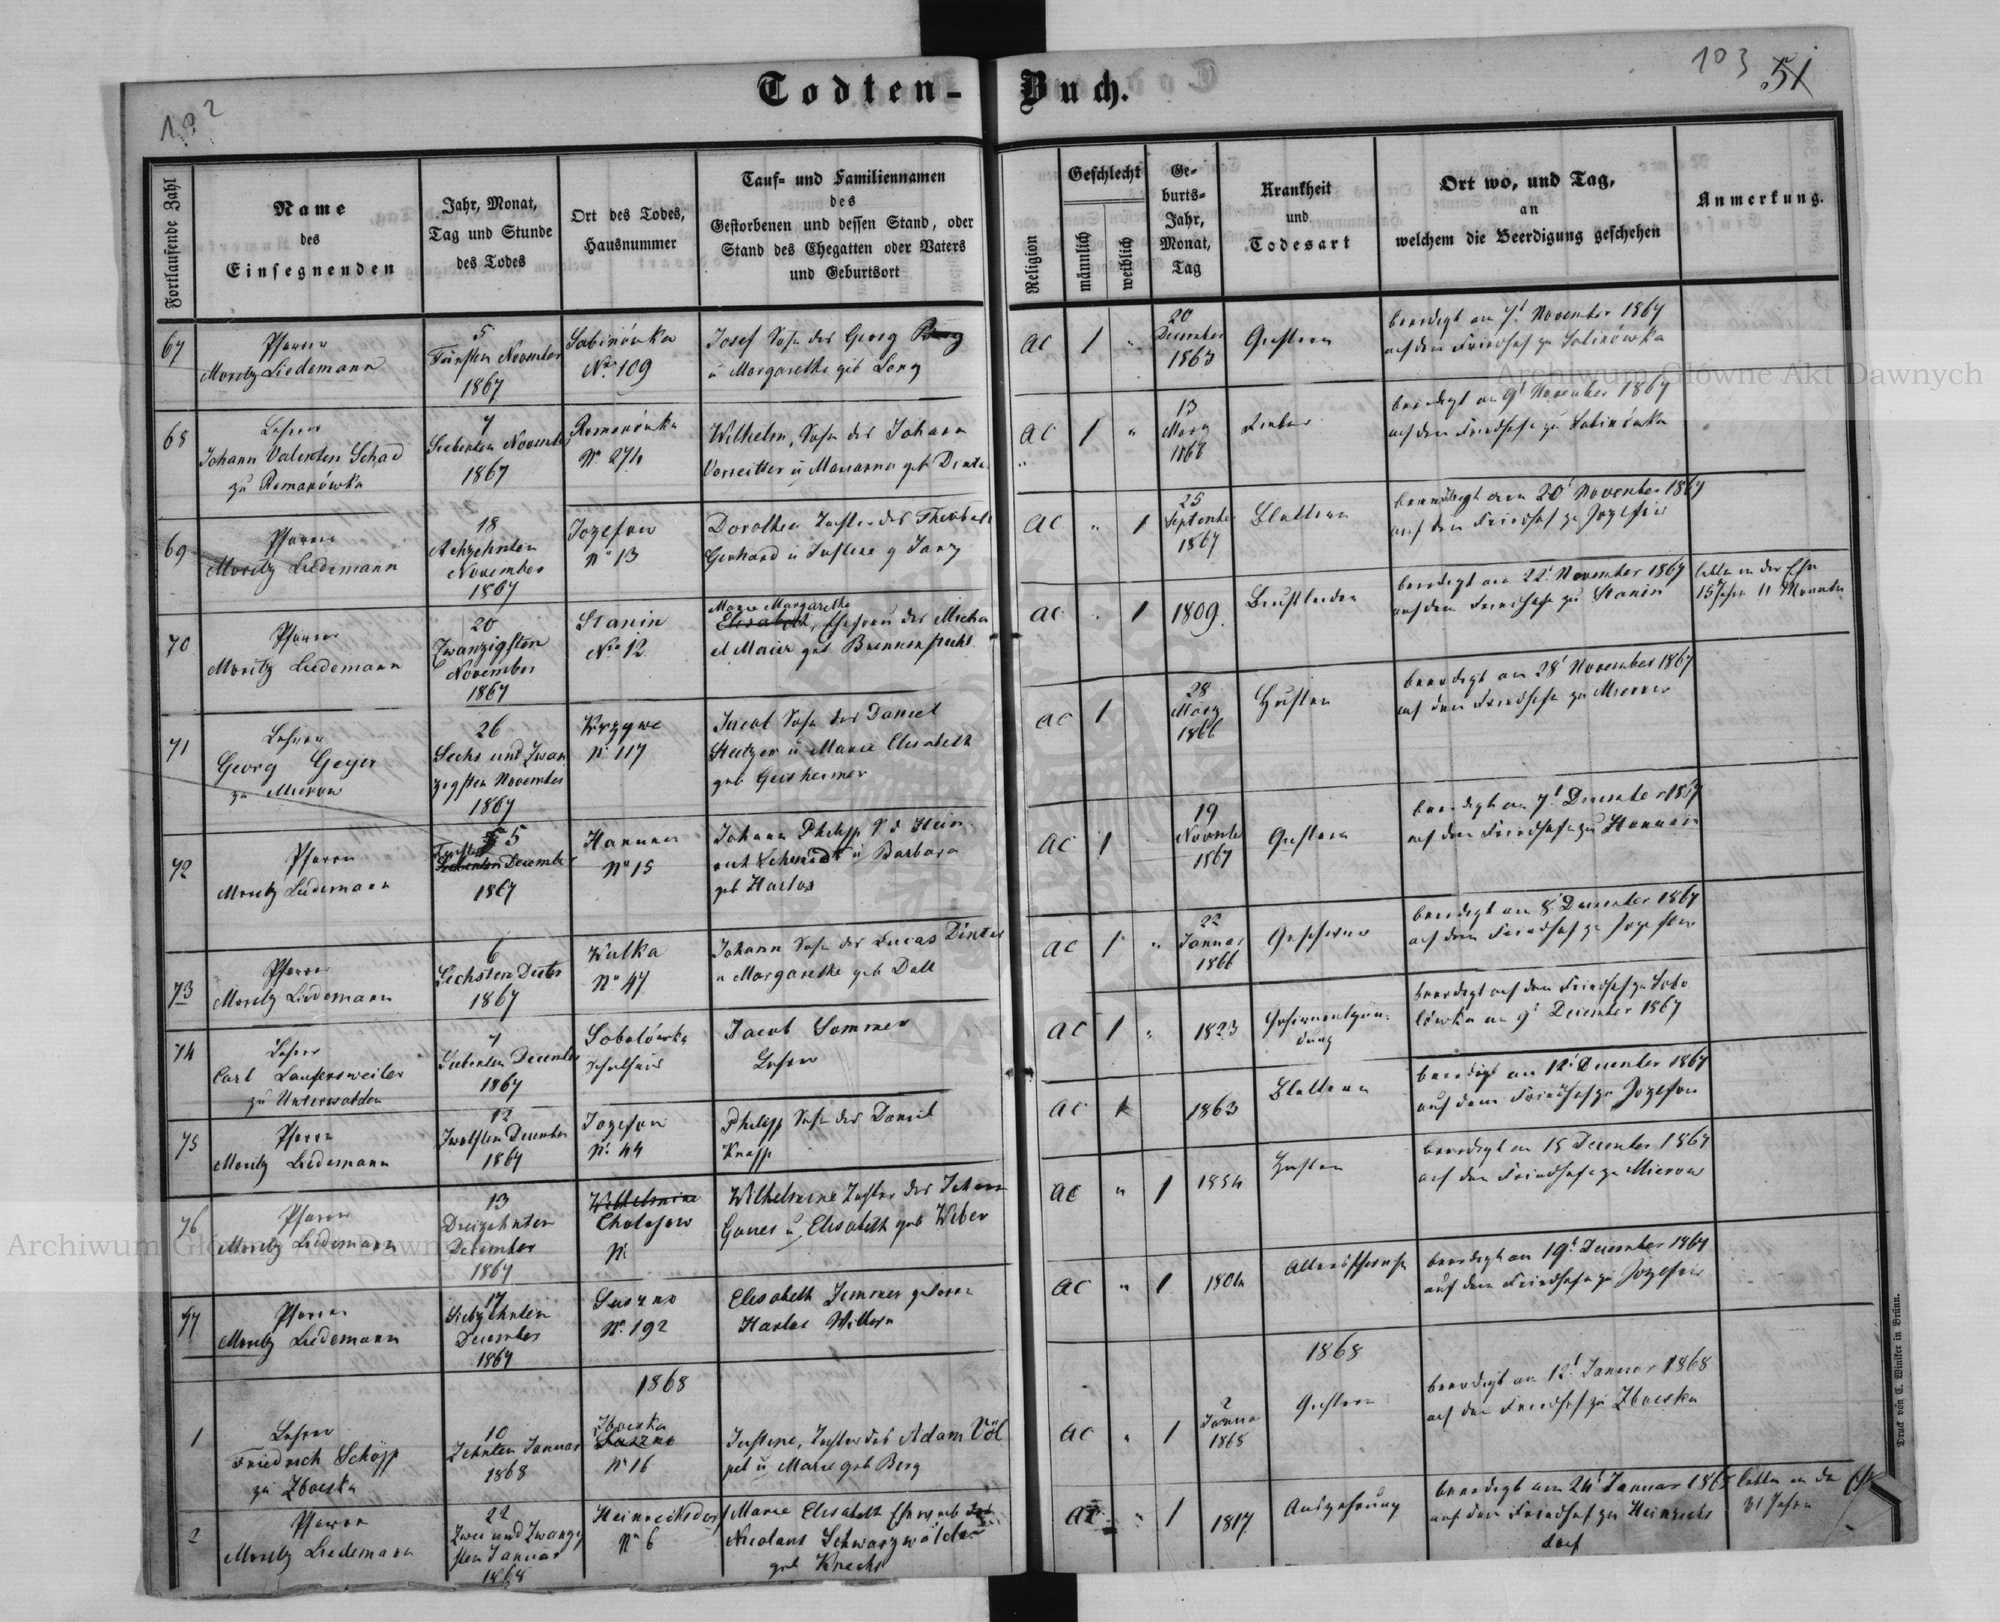 102
103 51
Todten-Buch.
Fortlaufende Zahl
Name
des
Einsegnenden
Jahr, Monat,
Tag und Stunde
des Todes
Ort des Todes,
Hausnummer
Tauf- und Familiennamen
des
Gestorbenen und dessen Stand, oder
Stand des Ehegatten oder Vaters
und Geburtsort
Religion
Geschlecht
männlich
weiblich
Ge-
burts-
Jahr,
Monat,
Tag
Krankheit
und
Todesart
Ort wo, und Tag,
an
welchem die Beerdigung geschehen
Anmerkung.
67
Pfarrer
Moritz Liedemann
5
Fünften November
1867
Sabinówka
No 109
Josef Sohn des Georg Berg
u Margarethe geb Lang
ac 1 "
20
December
1863
beerdigt am 7t November 1867
auf dem Friedhof zu Sabinówka
68
Lehrer
Johann Valentin Schad
zu Romanówka
7
Siebenten November
1867
Romanówka
No 274
Wilhelm, Sohn des Johann
u Marianna geb
ac 1 "
13
März
beerdigt am 9t November 1867
auf dem Friedhofe zu Sabinówka
69
Pfarrer
Moritz Liedemann
18
Achzehnten
November
1867
Jozefow
No 13
Dorothea Tochter des Theobald
Gerhard u Justine g Janz
ac " 1
25
September
1867
Blattern
beerdigt am 20t November 1867
auf dem Friedhof zu Jozefow
70
Pfarrer
Moritz Liedemann
20
Zwanzigsten
November
1867
Stanin
No 12
Marie Margarethe
Elisabeth, Ehefrau des Micha
el Maier geb Brennensteckl
ac 1
1809.
Brustleiden
beerdigt am 22t November 1867
auf dem Friedhofe zu Stanin
lebte in der Ehe
15 Jahre 11 Monate
71
Lehrer
Georg Geyer
zu Mierow
26
Sechs und Zwan
zigsten November
1867
Krzywe
No 117
Jacob Sohn des Daniel
u Marie Elisabeth
geb Geishermer
ac 1
28
März
1866
Husten
beerdigt am 28t November 1867
auf dem Friedhofe zu Mierow
72
Pfarrer
Moritz Liedemann
5
Fünften December
1867
Hanunin
No 15
Johann Philipp S d Hein
rich Schmidt u Barbara
geb Harlos
ac 1
19
November
1867
beerdigt am 7t December 1867
auf dem Friedhofe zu Hanunin
73
Pfarrer
Moritz Liedemann
6
Sechsten Decbr
1867
Kulka
No 47
Johann Sohn des Lucas Dinter
u Margarethe geb Doll
ac 1 "
22
Januar
1866
beerdigt am 8t December 1867
auf dem Friedhof zu
74
Lehrer
Carl Laufersweiler
zu Unterwalden
7
Siebenten December
1867
Sobolówka
Schulhaus
Jacob Sommer
Lehrer
ac 1 "
1823
Gehirnentzün-
dung
beerdigt auf dem Friedhof zu Sobo
lówka am 9t December 1867
75
Pfarrer
Moritz Liedemann
12
Zwölften December
1867
Jozefow
No 44
Philipp Sohn des Daniel
Knapp
ac 1
1863
Blattern
beerdigt am 12t December 1867
auf dem Friedhof zu Jozefow
76
Pfarrer
Moritz Liedemann
13
Dreizehnten
December
1867
Wilhelmine
Cholojow
No
Wilhelmine Tochter des Johann
u Elisabeth geb Weber
ac " 1
1854
Husten
beerdigt am 15 December 1867
auf dem Friedhofe zu Mierow
77
Pfarrer
Moritz Liedemann
17
Siebzehnten
December
1867
Suszno
No 192
Elisabeth Jemmer geborne
Harlos Wittwe
ac " 1
1804
Altersschwäche
beerdigt am 19t December 1867
auf dem Friedhofe zu Jozefow
1868
1868
1
Lehrer
Friedrich Schöpp
zu Zboiska
10
Zehnten Januar
1868
Zboiska
Suszno
No 16
Justine, Tochter des Adam Völ
pel u Marie geb Berg
ac " 1
2
Januar
1868
beerdigt am 12t Januar 1868
auf dem Friedhof zu Zboiska
2
Pfarrer
Moritz Liedemann
22
Zwei und Zwanzig
sten Januar
1868
Heinrichsdorf
No 6
Marie Elisabeth Eheweib des
Nicolaus Schwarzwälder
geb Knecht
ac " 1
1817
Auszehrung
beerdigt am 24t Januar 1868
auf dem Friedhof zu Heinrichs
dorf
lebte in der Ehe
31 Jahre
Druck von C. Winiker in Brünn.
Archiwum Główne Akt Dawnych
Archiwum Główne Akt Dawnych